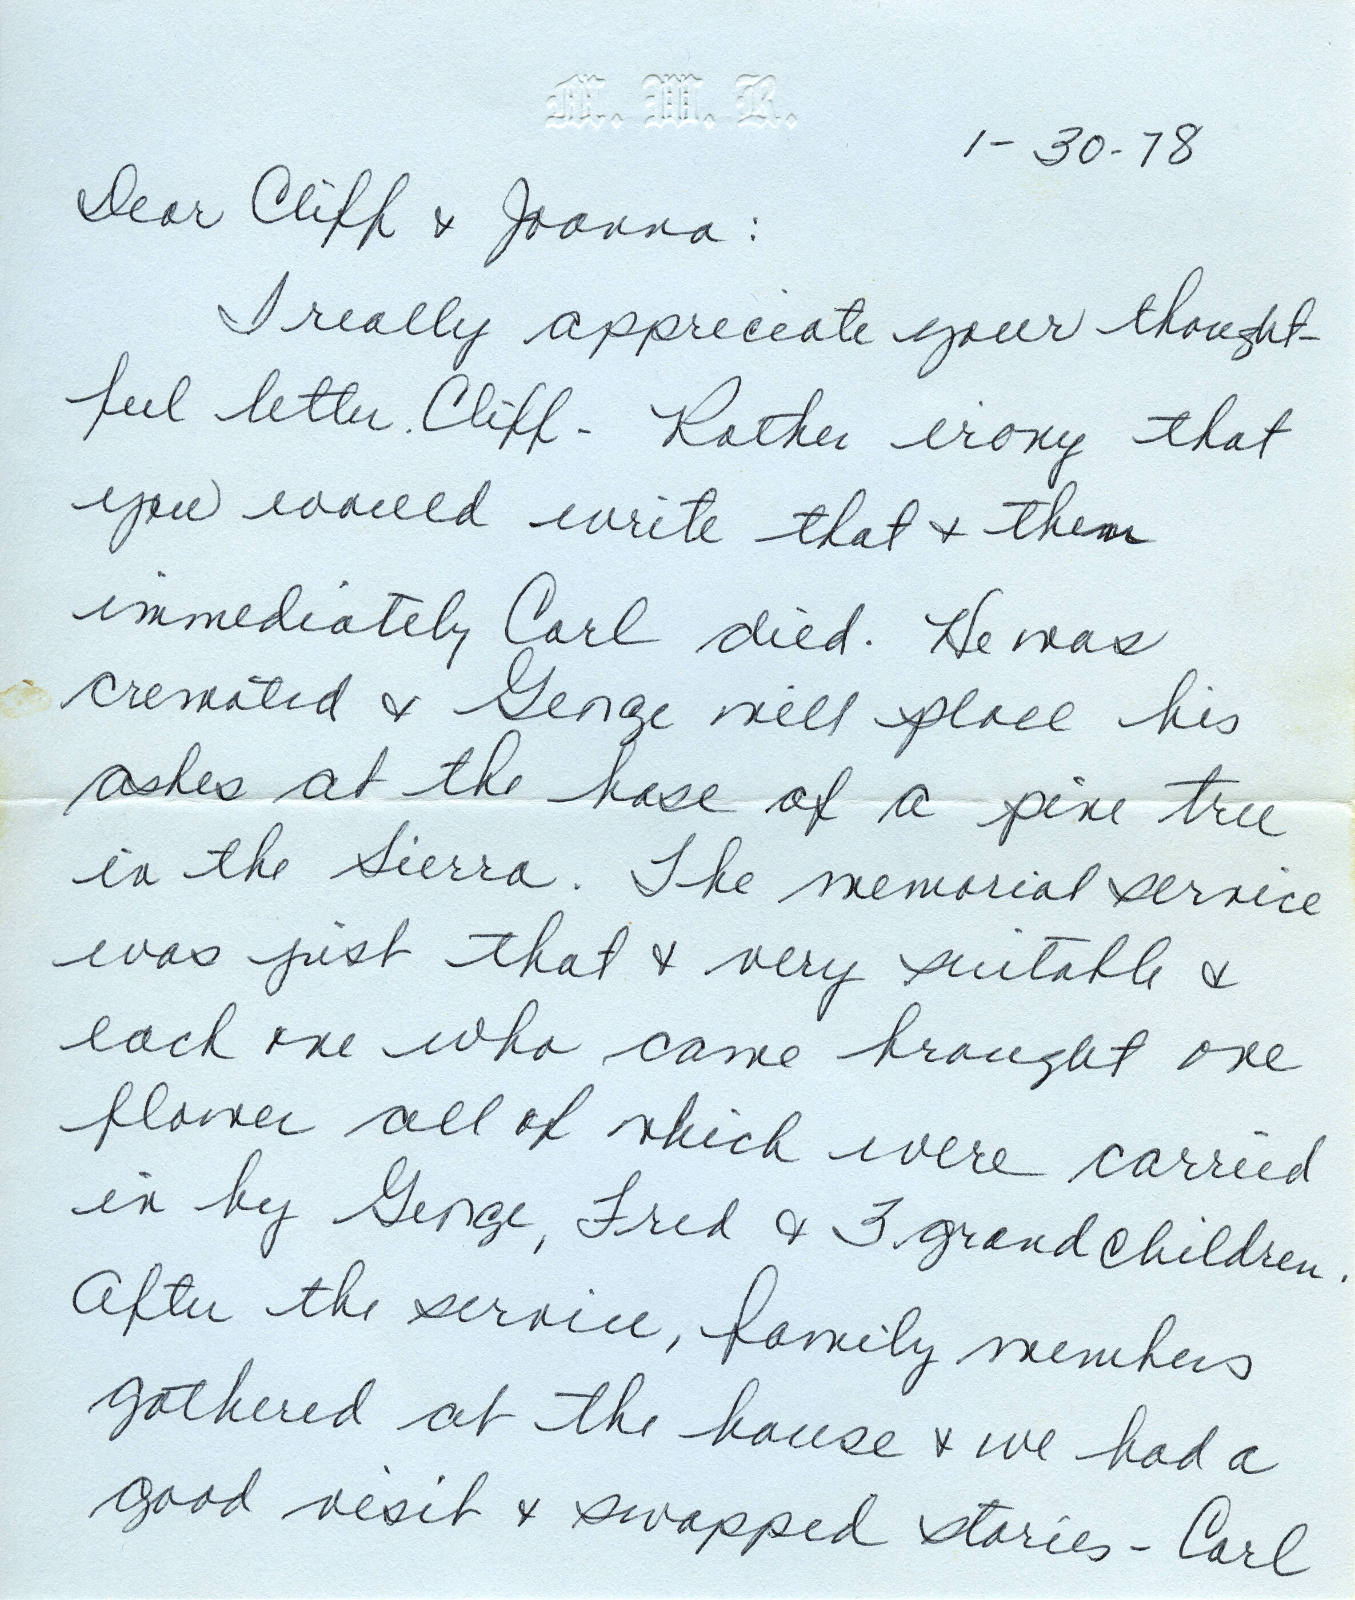 M. M. R.
1-30-78
Dear Cliff & Joanna:
I really appreciate your thought-
ful letter. Cliff - Rather irony that
you would write that & then
immediately Carl died. He was
cremated & George will place his
ashes at the base of a pine tree
in the Sierra. The memorial service
was just that & very suitable &
each one who came brought one
flower all of which were carried
in by George, Fred & 3 grandchildren.
After the service, family members
gathered at the house & we had a
good visit & swapped stories - Carl